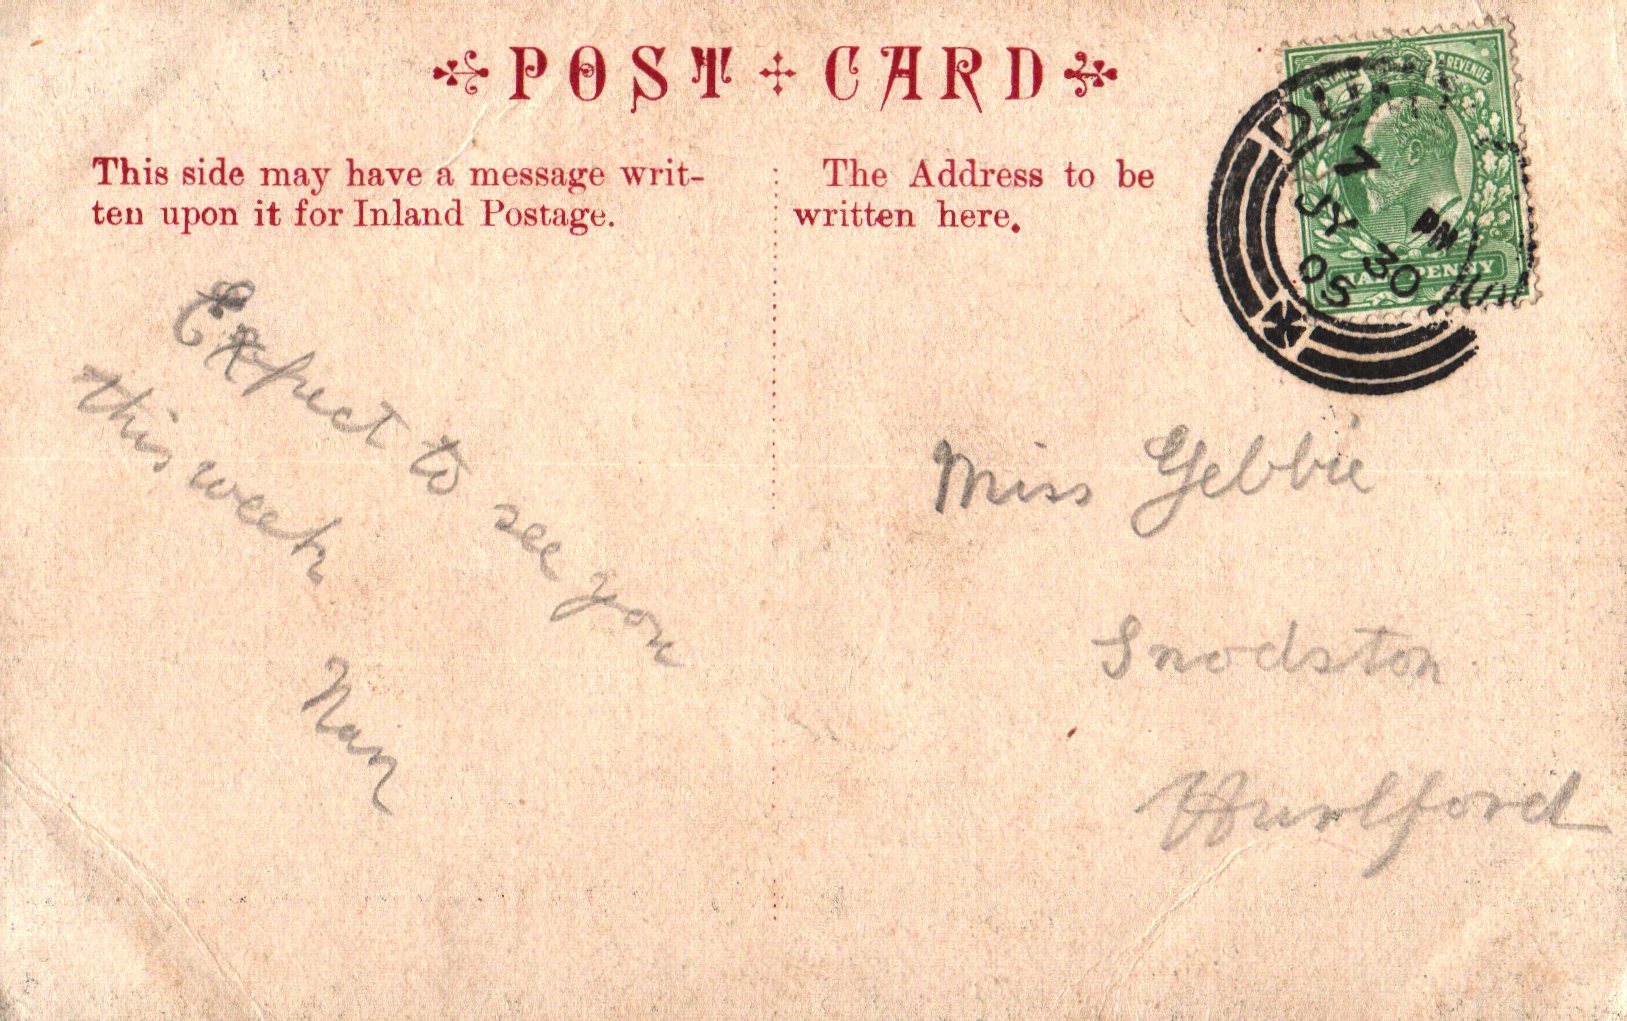 POST CARD
This side may have a message writ-
ten upon it for Inland Postage.
The Address to be
written here.
POSTAGE REVENUE
HALFPENNY
7 PM
JY 30
05
Expect to see you
this week
Nan
Miss Gebbie
Snodston
Hurlford